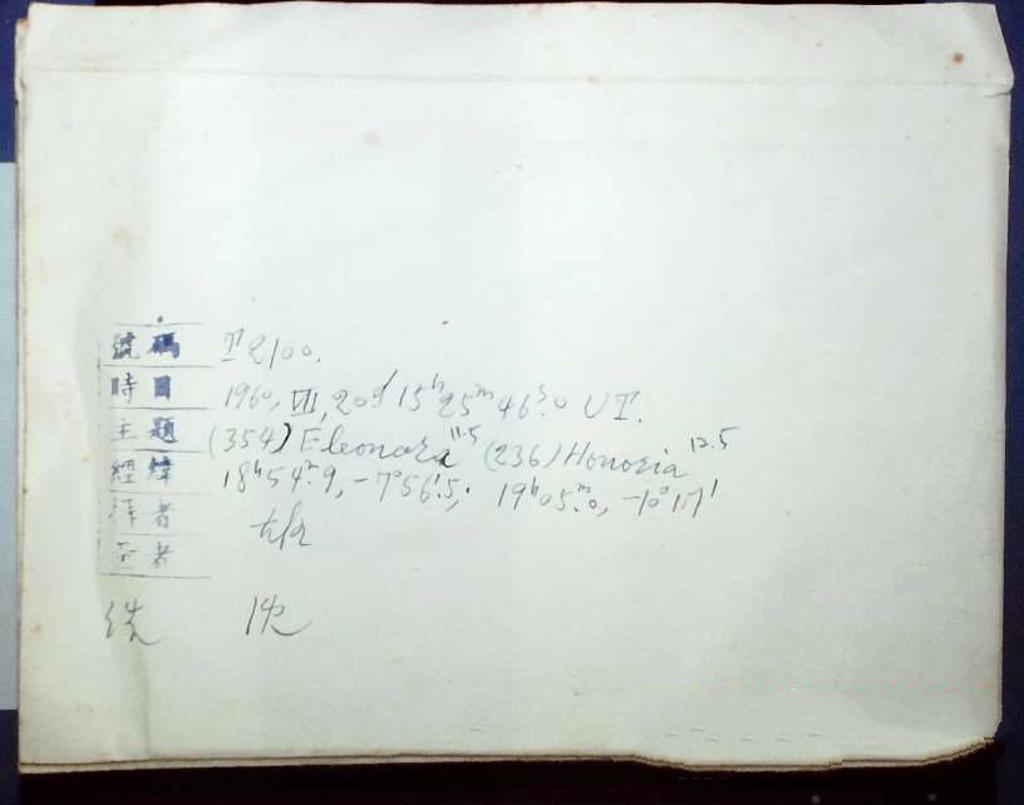 號碼 T 2100.
時日 1960, VII, 20d 15h 25m 46s.0 UT.
主題 (354) Eleonora 11.5 (236) Honoria 12.5
經緯 18h54m.9, -7°56'.5, 19h05m.0, -10°17'
者
者